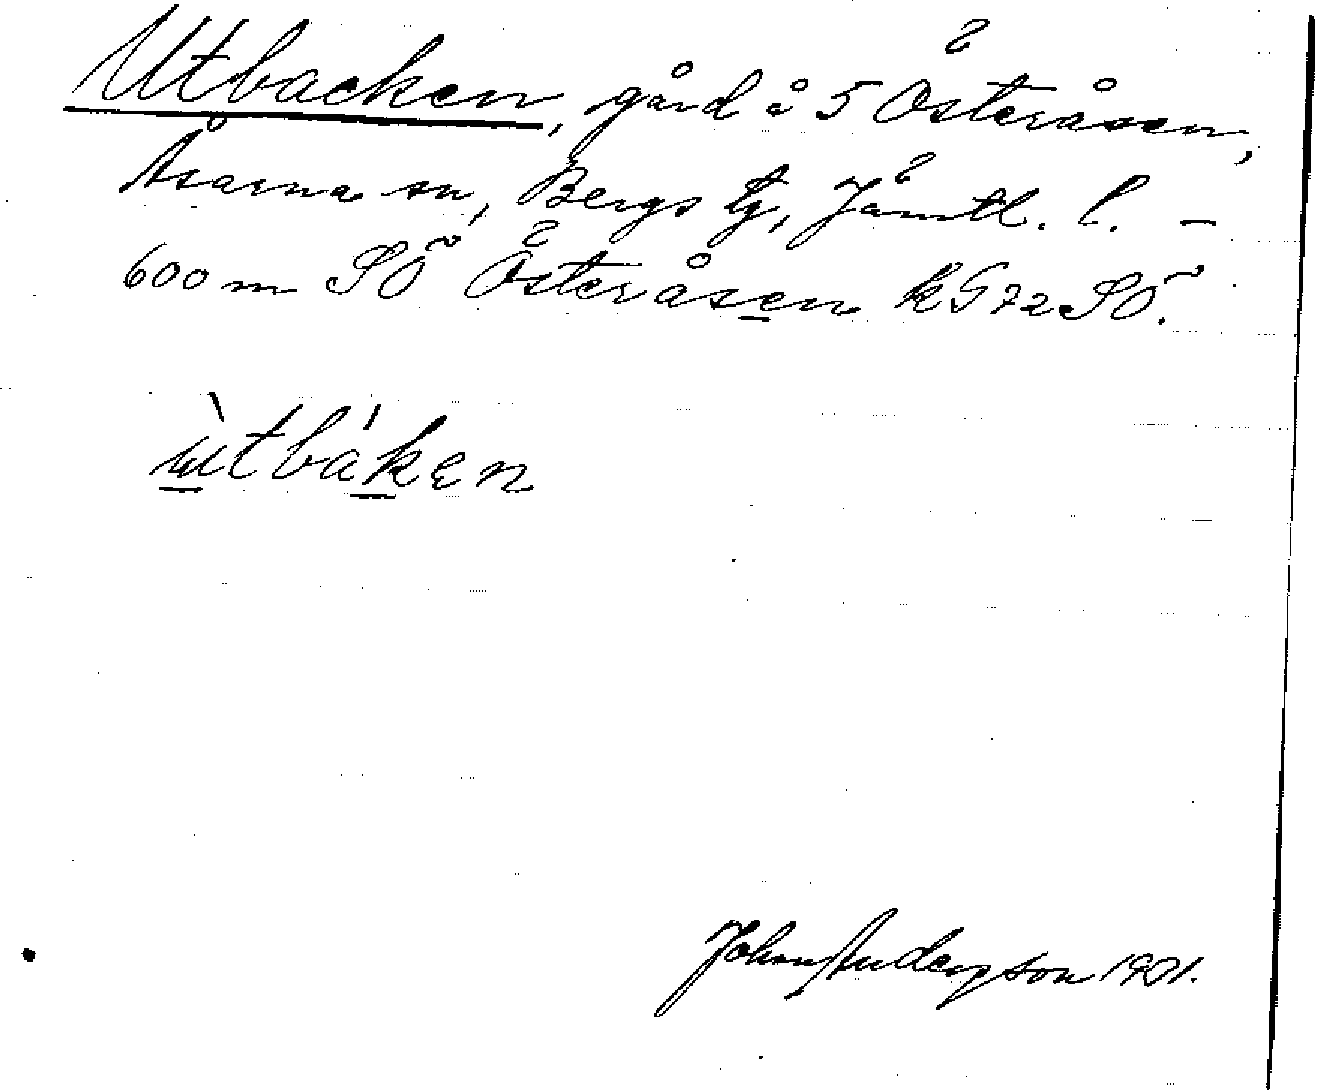 Utbacken, gård å 5 Österåsen,
Åsarna sn, Bergs tg, Jämtl. l. –
600 m SÖ Österåsen k G72SÖ.
ùtbáken
John Anderson 1901.